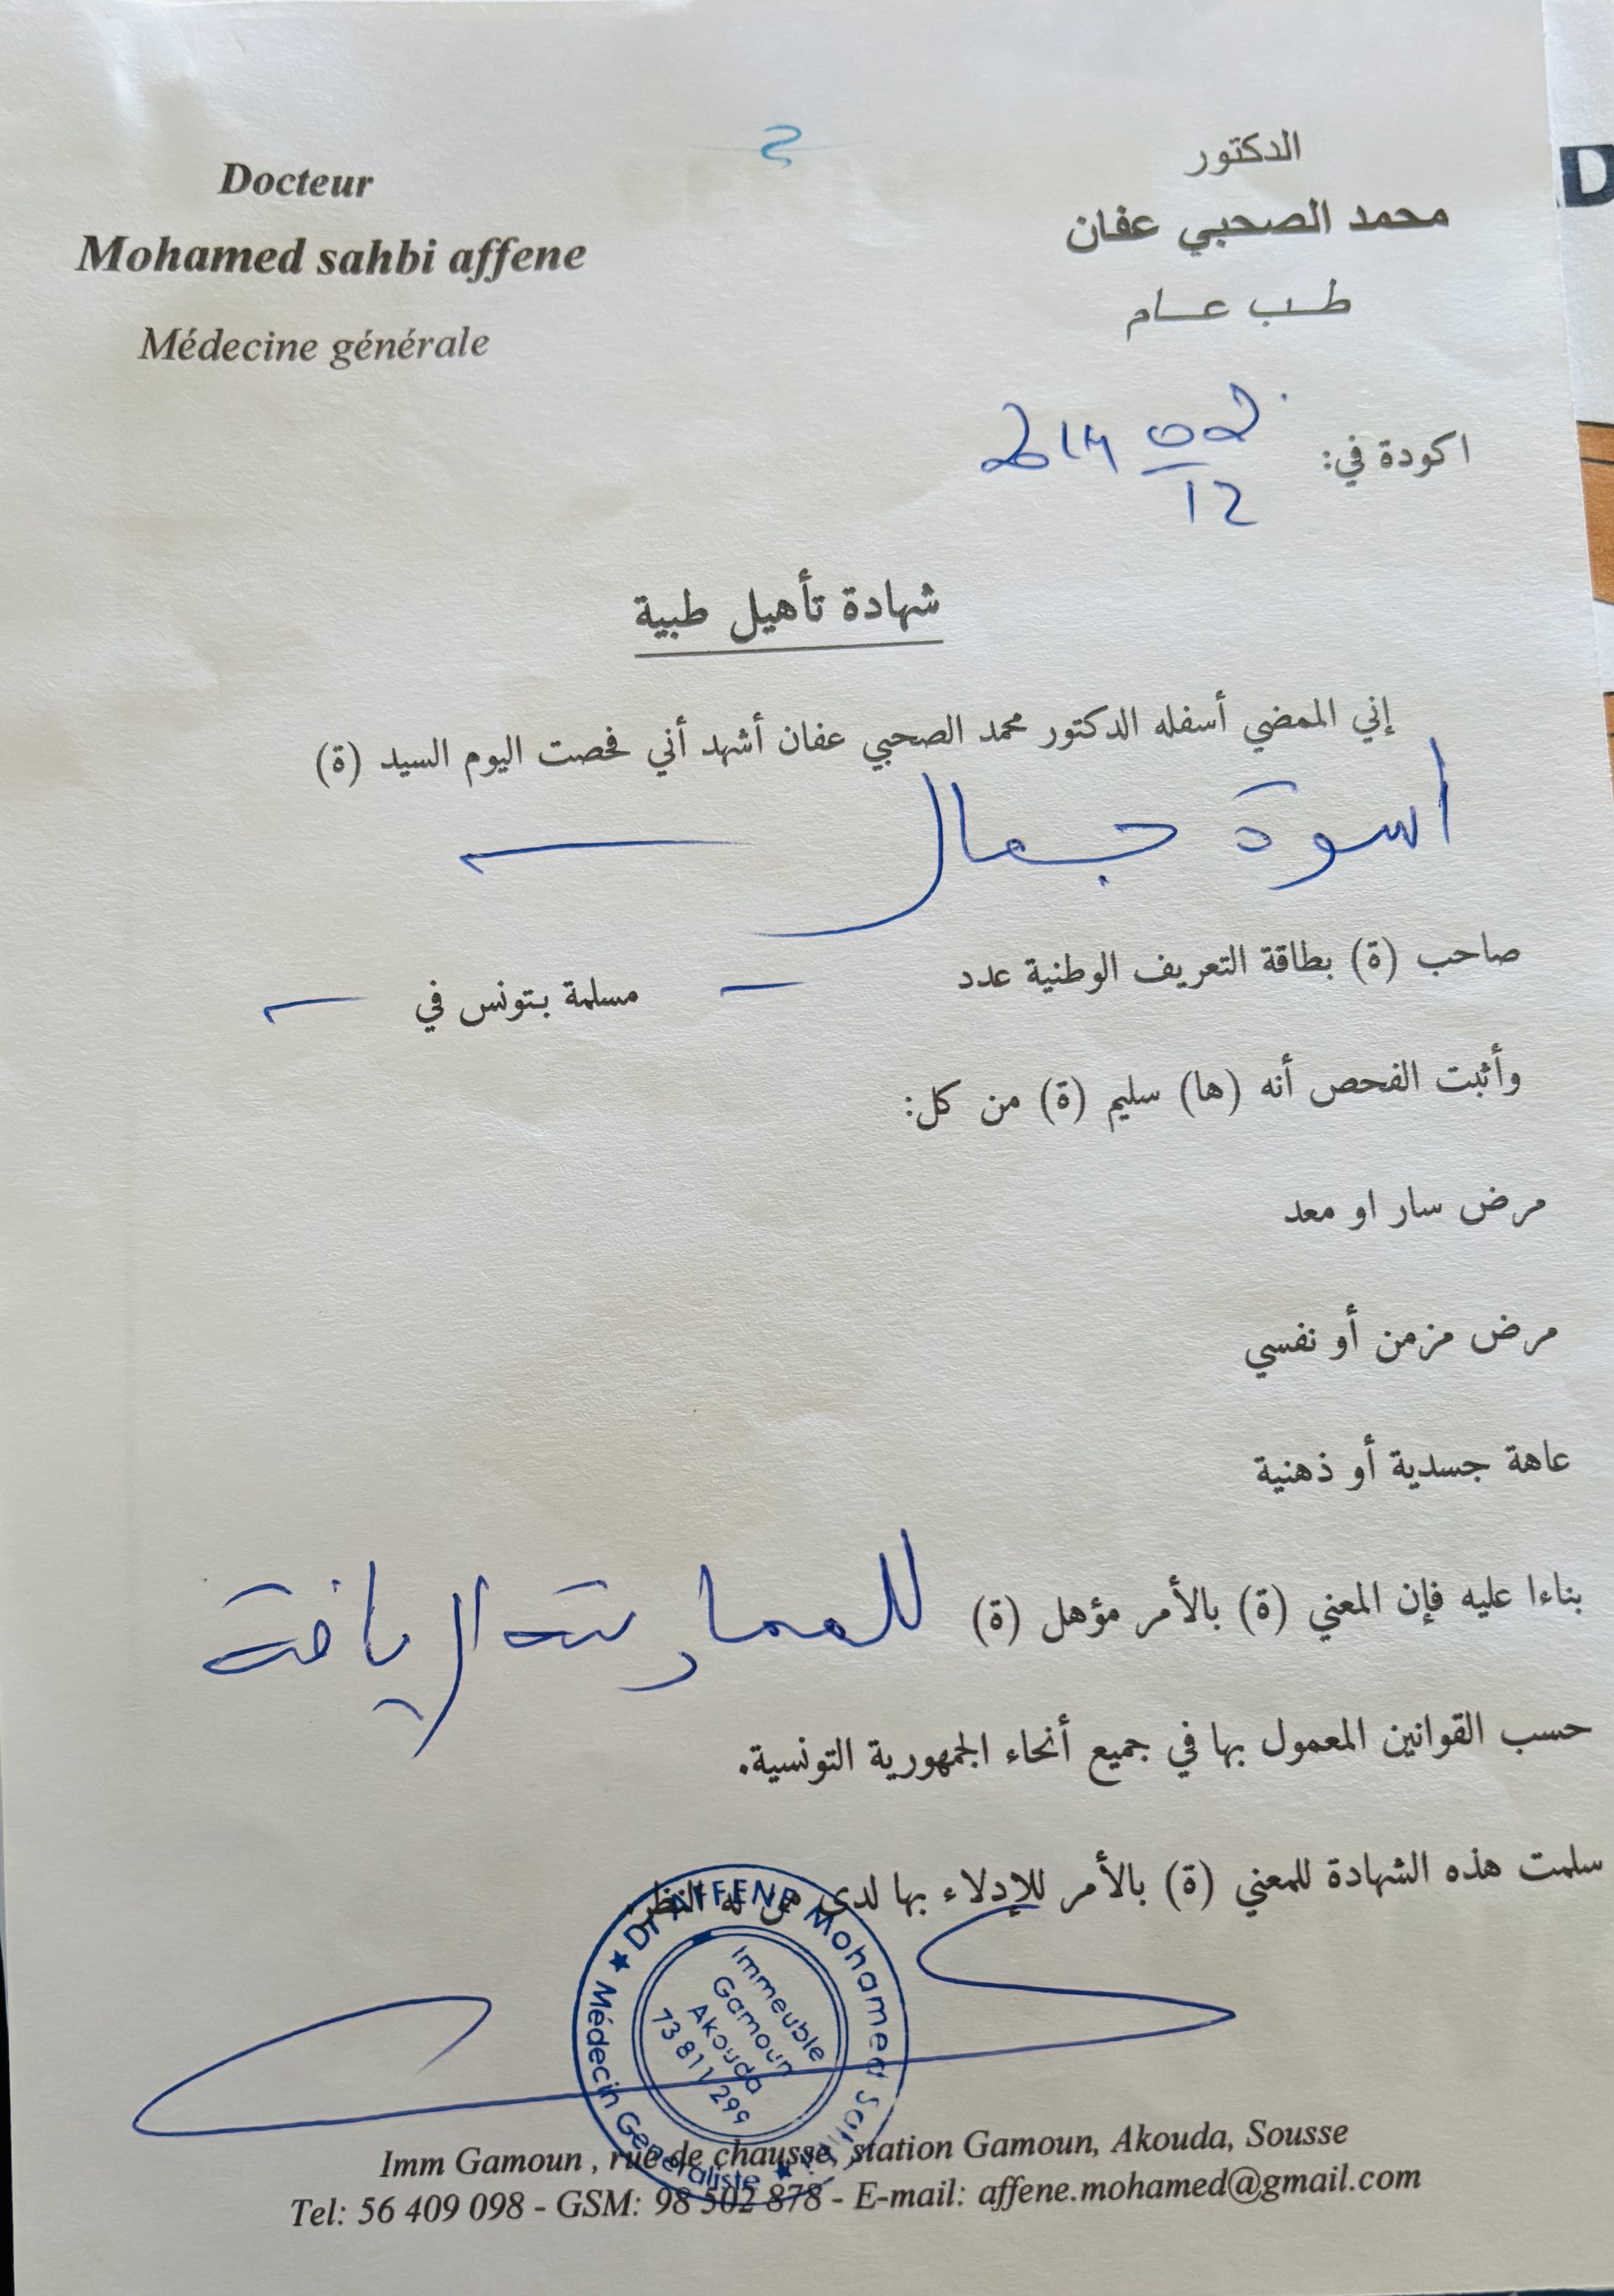 Docteur
Mohamed sahbi affene
Médecine générale
الدكتور
محمد الصحبي عفان
طب عام
اكودة في: 02
12
شهادة تأهيل طبية
إني الممضي أسفله الدكتور محمد الصحبي عفان أشهد أني فحصت اليوم السيد (ة)
اسوة جمال
صاحب (ة) بطاقة التعريف الوطنية عدد – مسلمة بتونس في –
وأثبت الفحص أنه (ها) سليم (ة) من كل:
مرض سار او معد
مرض مزمن أو نفسي
عاهة جسدية أو ذهنية
بناءا عليه فإن المعني (ة) بالأمر مؤهل (ة) للممارسة الرياضة
حسب القوانين المعمول بها في جميع أنحاء الجمهورية التونسية.
سلمت هذه الشهادة للمعني (ة) بالأمر للإدلاء بها لدى من له النظر.
Dr AFFENE Mohamed Sahbi
Médecin Généraliste
Immeuble
Gamoun
Akouda
73 811 299
Imm Gamoun , rue de chausse, station Gamoun, Akouda, Sousse
Tel: 56 409 098 - GSM: 98 502 878 - E-mail: affene.mohamed@gmail.com